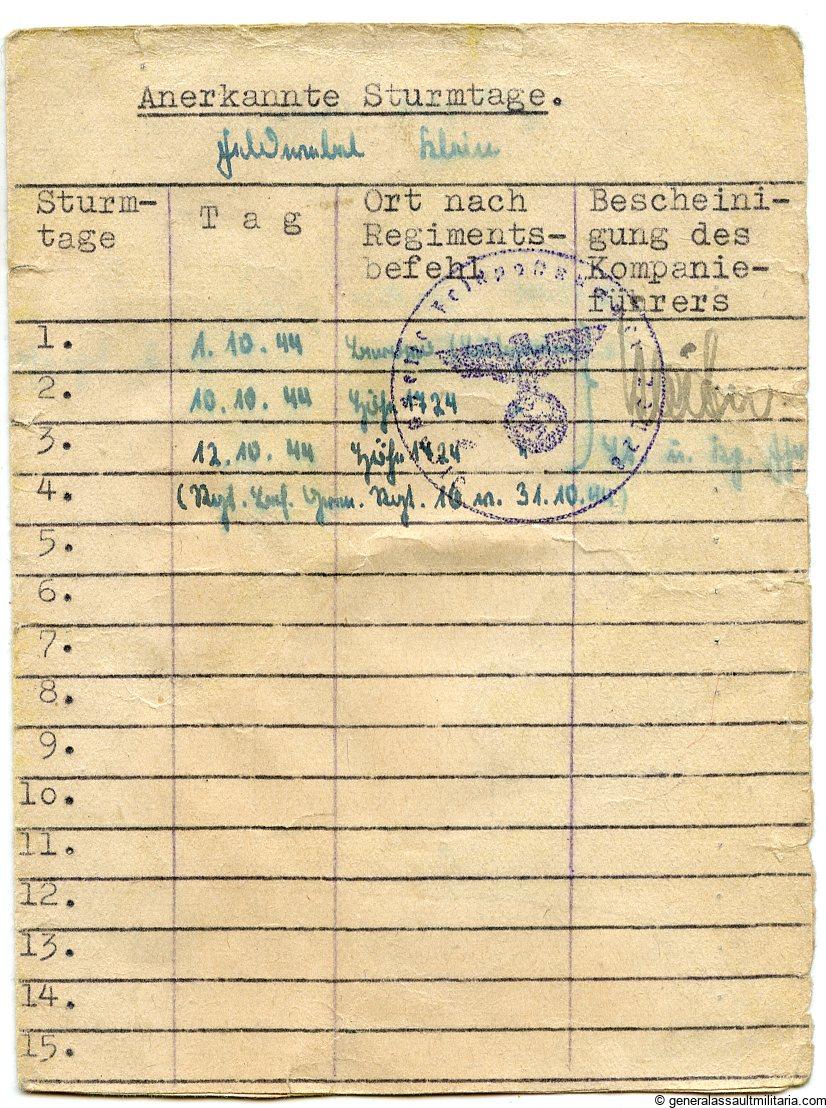 Anerkannte Sturmtage.
Feldwebel Klein
Sturm-
tage
Tag
Ort nach
Regiments-
befehl
Bescheini-
gung des
Kompanie-
führers
1. 1.10.44
2. 10.10.44 Höhe 1724
3. 12.10.44 Höhe 1724 "
4. (Regt. Bef. Gren. Regt. 16 v. 31.10.44)
5.
6.
7.
8.
9.
10.
11.
12.
13.
14.
15.
© generalassaultmilitaria.com